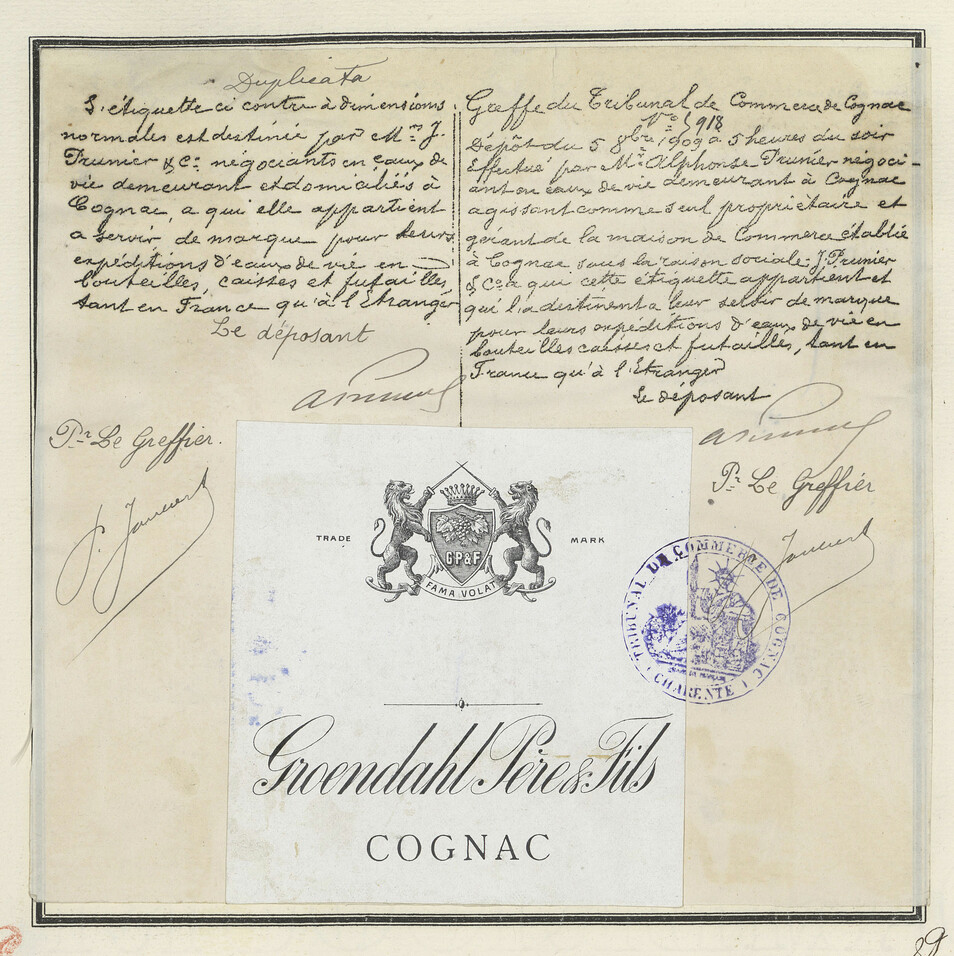 Duplicata
L'étiquette ci contre à dimensions
normales est destinée par Mrs J.
Prunier & Co. négociants en eaux de
vie demeurant et domiciliés à
Cognac, a qui elle appartient
a servir de marque pour leurs
expéditions d'eaux de vie en
bouteilles, caisses et futailles,
tant en France qu'à l'Etranger
Le déposant
APrunier
Pr. Le Greffier.
Greffe du Tribunal de Commerce de Cognac
No 5918
Dépôt du 5 8bre 1909 à 5 heures du soir
Effectué par Mr. Alphonse Prunier négoci-
ant en eaux de vie demeurant à Cognac
agissant comme seul propriétaire et
gérant de la maison de Commerce établie
à Cognac sous la raison sociale: J. Prunier
& Co. a qui cette étiquette appartient et
qui l'a destinent a leur servir de marque
pour leurs expéditions d'eaux de vie en
bouteilles caisses et futailles, tant en
France qu'à l'Etranger
Le déposant
APrunier
Pr. Le Greffier
TRIBUNAL DE COMMERCE DE COGNAC
CHARENTE
TRADE MARK
GP&F
FAMA VOLAT
Groendahl Père & Fils
COGNAC
89